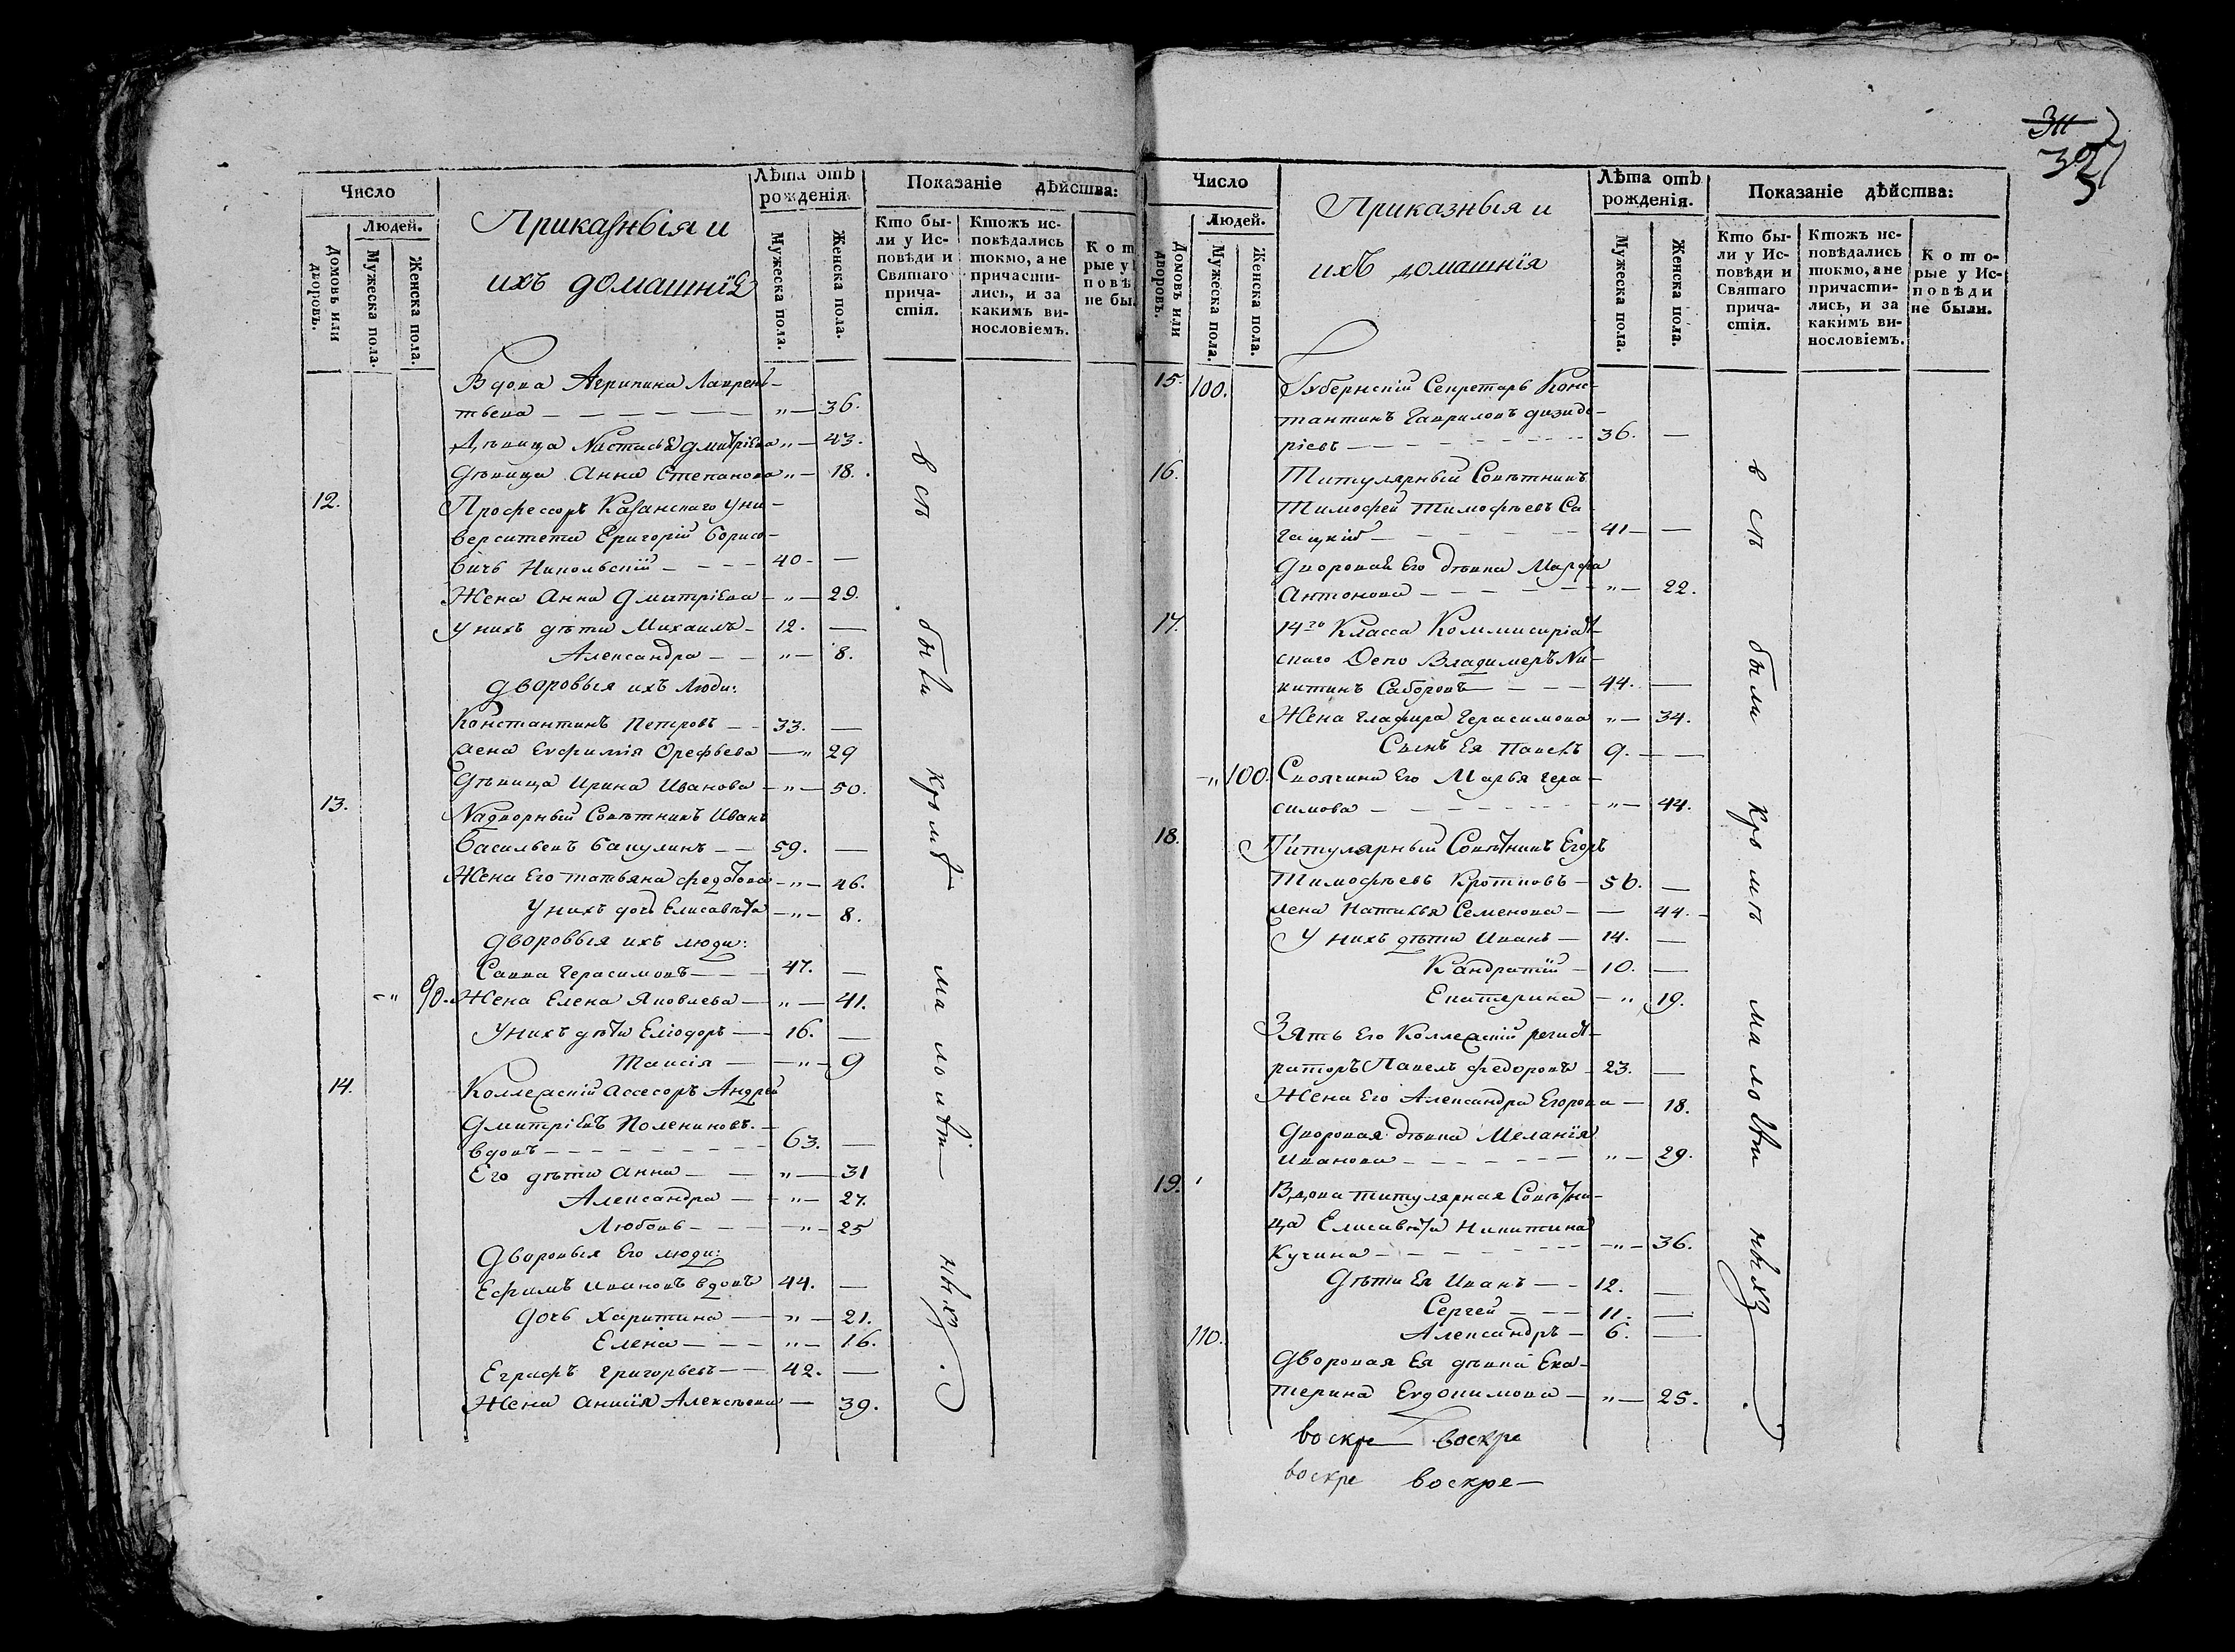 Число
Людей.
Домовъ или дворовъ.
Мужеска пола.
Женска пола.
Приказныя и
ихъ домашнія
Лѣта отъ
рожденія
Мужеска пола.
Женска пола.
Показаніе дѣйства:
Кто бы-
ли у Ис-
повѣди и
Святаго
прича-
стія.
Ктожъ ис-
повѣдались
токмо, а не
причасти-
лись, и за
какимъ ви-
нословіемъ.
Кот
рые у
повѣ
не бы
Вдова Агрипина Лаврен-
тьева " 36.
Дѣвица Настасья Дмитріева " 43.
Дѣвица Анна Степанова " 18.
12. Профессоръ Казанскаго Уни-
верситета Григорій Борисо-
вичъ Никольскій 40 —
Жена Анна Дмитріева " 29.
У нихъ дѣти Михаилъ 12. —
Александра " 8.
Дворовыя ихъ люди:
Константинъ Петровъ 33. —
Жена Евфимія Орефьева " 29
Дѣвица Ирина Иванова " 50.
13. Надворный Совѣтникъ Иванъ
Васильевъ Бакулинъ 59. —
Жена Его Татьяна Федотова " 46.
У нихъ дочь Елисавета " 8.
Дворовыя ихъ люди:
Савва Герасимовъ 47. —
" 90. Жена Елена Яковлева " 41.
У нихъ дѣти Еліодоръ 16. —
Таисія " 9
14. Коллежскій Ассесоръ Андрей
Дмитріевъ Полениновъ
вдовъ 63. —
Его дѣти Анна " 31
Александра " 27.
Любовь " 25
Дворовыя Его люди:
Ефимъ Ивановъ вдовъ 44. —
Дочь Харитина " 21.
Елена " 16.
Еграфъ Григорьевъ 42. —
Жена Анисія Алексѣева — 39.
всѣ были кромѣ малолѣтныхъ.
311
325
Число
Людей.
Домовъ или дворовъ.
Мужеска пола.
Женска пола.
Приказныя и
ихъ домашнія
Лѣта отъ
рожденія.
Мужеска пола.
Женска пола.
Показаніе дѣйства:
Кто бы-
ли у Ис-
повѣди и
Святаго
прича-
стія.
Ктожъ ис-
повѣдались
токмо, а не
причасти-
лись, и за
какимъ ви-
нословіемъ.
Кото-
рые у Ис-
повѣди
не были.
15. 100. Губернскій Секретарь Конс-
тантинъ Гавриловъ Дизиде-
ріевъ 36. —
16. Титулярный Совѣтникъ
Тимофей Тимофѣевъ Са-
гацкій 41 —
Дворовая Его дѣвка Марфа
Антонова " 22.
17. 14го Класса Коммисаріат-
скаго Депо Владимеръ Ни-
китинъ Саборовъ 44. —
Жена Глафира Герасимова " 34.
Сынъ Ея Павелъ 9. —
" 100. Своячина Его Марья Гера-
симова " 44.
18. Титулярный Совѣтникъ Егоръ
Тимофѣевъ Кротковъ 56. —
Жена Наталья Семенова — 44.
У нихъ дѣти Иванъ 14. —
Кандратій 10. —
Екатерина " 19.
Зять Его Коллежскій регист-
раторъ Павелъ Федоровъ 23. —
Жена Его Александра Егорова — 18.
Дворовая дѣвка Меланія
Иванова " 29.
19. Вдова титулярная Совѣтни-
ца Елисавета Никитина
Кучина " 36.
Дѣти Ея Иванъ 12. —
Сергей 11. —
110. Александръ 6. —
Дворовая Ея дѣвка Ека-
терина Евдокимова " 25.
всѣ были кромѣ малолѣтныхъ.
воскре воскре
воскре воскре